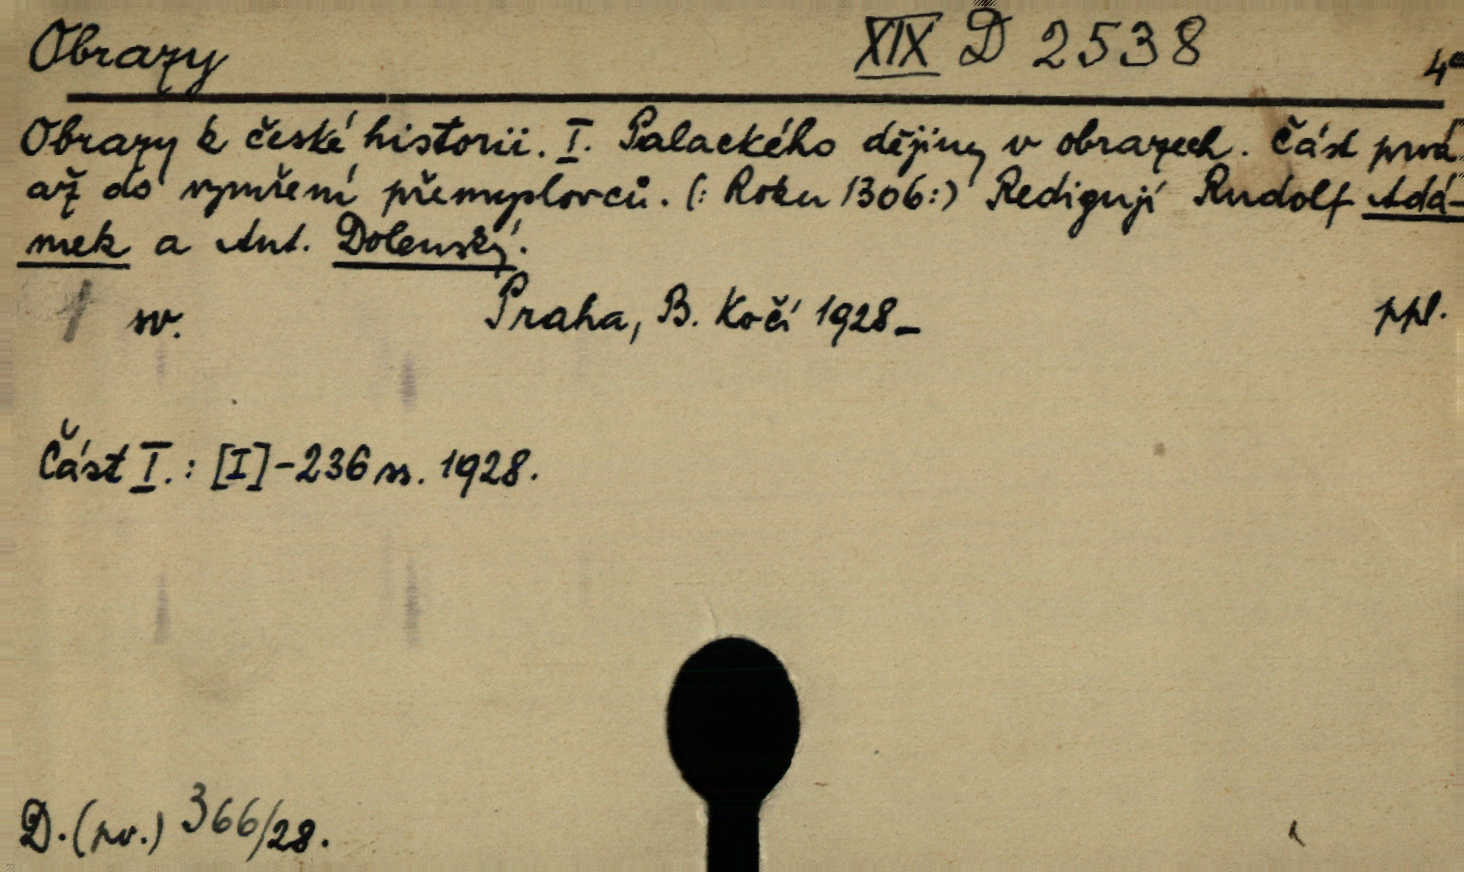 Obrazy XIX D 2538 4°
Obrazy k české historii. I. Palackého dějiny v obrazech. Část prvá
až do vymření přemyslovců. (: Roku 1306:) Redigují Rudolf Adá-
mek a Ant. Dolenský.
1 sv. Praha, B. Kočí 1928- ppl.
Část I.: [I]-236 ss. 1928.
D. (pv.) 366/28.